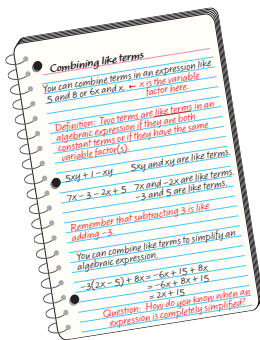 Combining like terms
You can combine terms in an expression like
5 and 8 or 6x and x. ← x is the variable
factor here.
Definition: Two terms are like terms in an
algebraic expression if they are both
constant terms or if they have the same
variable factor(s).
5xy + 1 - xy 5xy and xy are like terms.
7x - 3 - 2x + 5 7x and -2x are like terms.
-3 and 5 are like terms.
Remember that subtracting 3 is like
adding -3.
You can combine like terms to simplify an
algebraic expression.
-3(2x - 5) + 8x = -6x + 15 + 8x
= -6x + 8x + 15
= 2x + 15
Question: How do you know when an
expression is completely simplified?